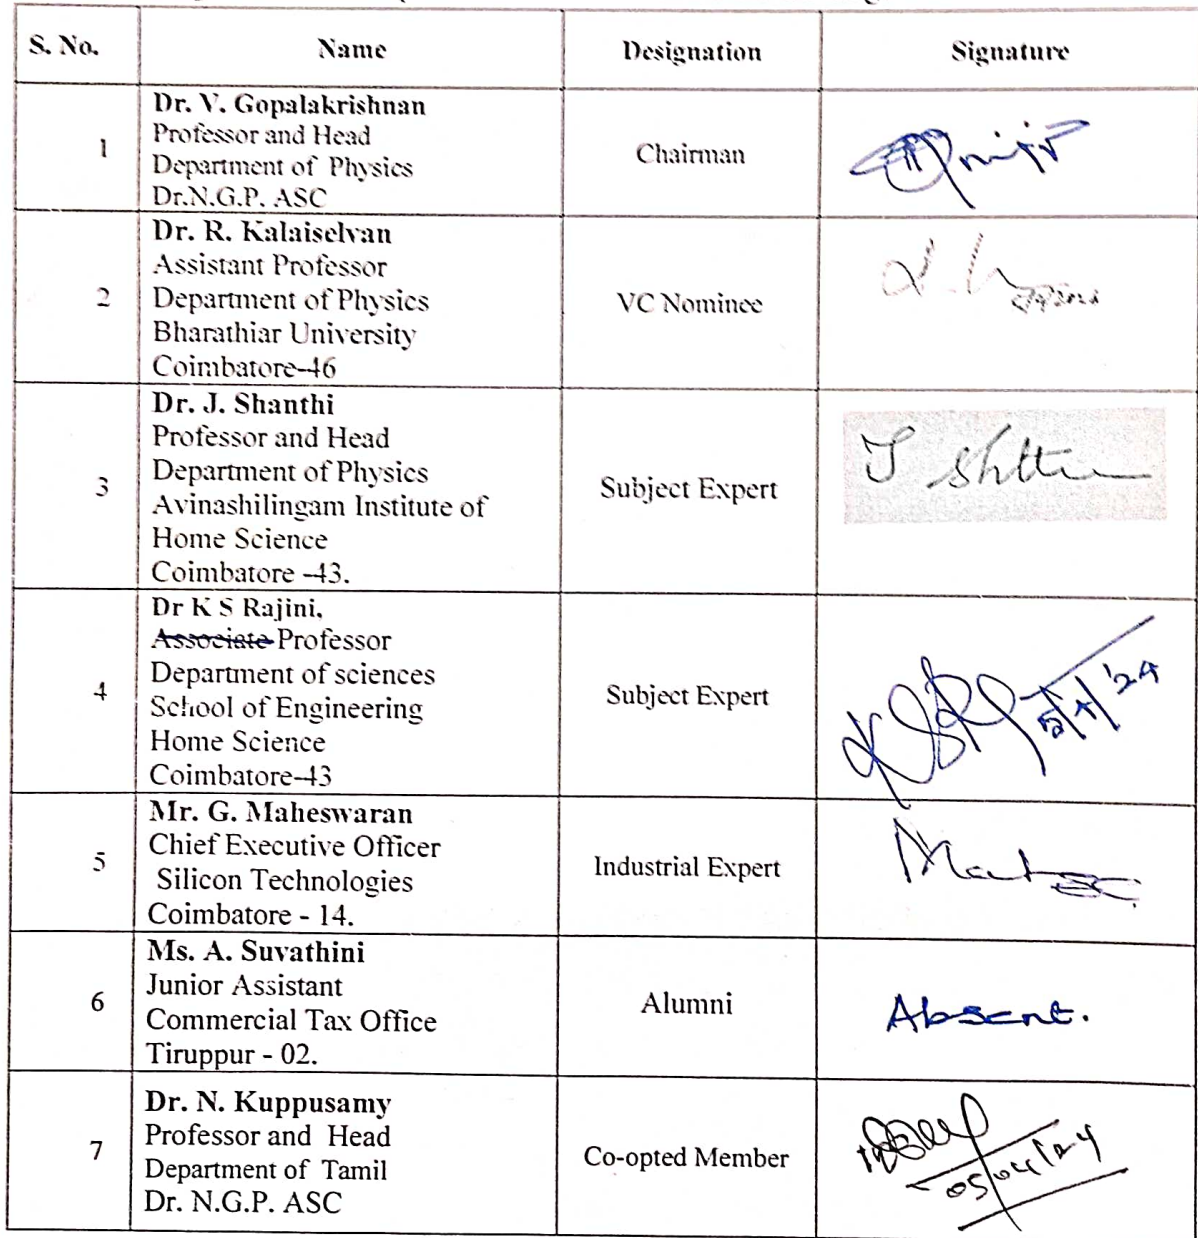 S. No. Name Designation Signature
1
Dr. V. Gopalakrishnan
Professor and Head
Department of Physics
Dr.N.G.P. ASC
Chairman
2
Dr. R. Kalaiselvan
Assistant Professor
Department of Physics
Bharathiar University
Coimbatore-46
VC Nominee
3
Dr. J. Shanthi
Professor and Head
Department of Physics
Avinashilingam Institute of
Home Science
Coimbatore -43.
Subject Expert
4
Dr K S Rajini,
Associate Professor
Department of sciences
School of Engineering
Home Science
Coimbatore-43
Subject Expert
5/4/'24
5
Mr. G. Maheswaran
Chief Executive Officer
Silicon Technologies
Coimbatore - 14.
Industrial Expert
6
Ms. A. Suvathini
Junior Assistant
Commercial Tax Office
Tiruppur - 02.
Alumni
Absent.
7
Dr. N. Kuppusamy
Professor and Head
Department of Tamil
Dr. N.G.P. ASC
Co-opted Member
05/04/24